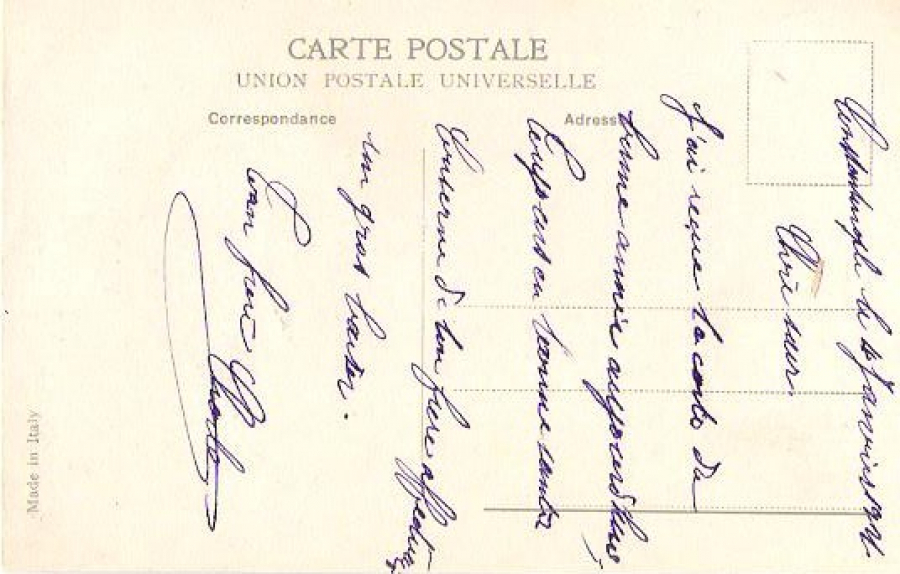 CARTE POSTALE
UNION POSTALE UNIVERSELLE
Correspondance
Adresse
Constantinople le Janvier
Chère sœur
J'ai reçue ta carte de
bonne année aujourd'hui
en bonne santé
de ton frere
un gros baiser.
Ton frère
Made in Italy